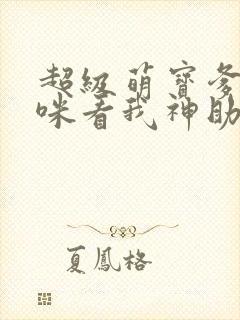 超級萌寶爹
咪看我神助
夏鳳格